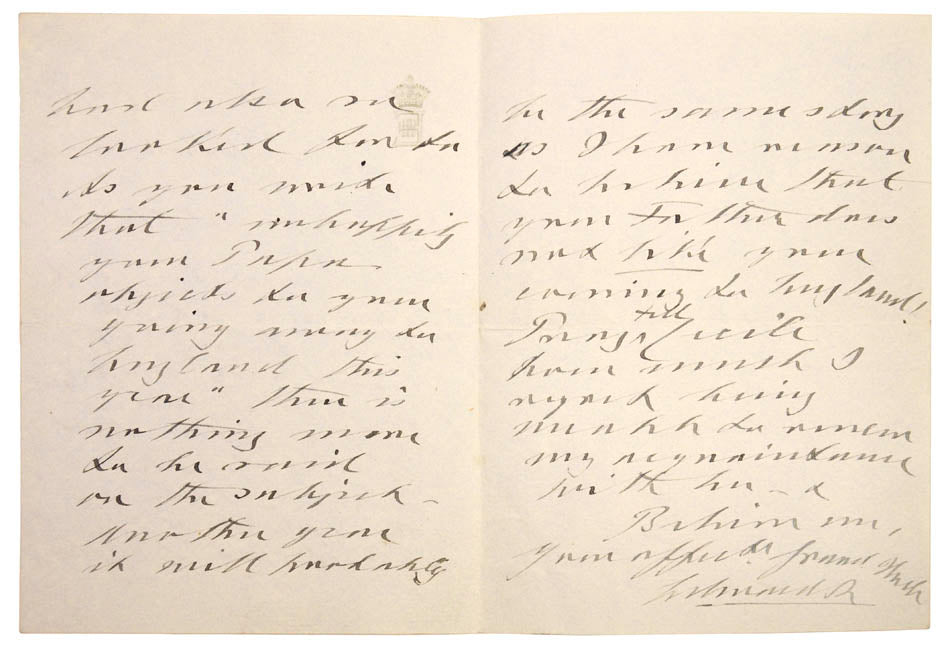 had also so
looked for to
As you write
that "unhappily
your Papa
objects to your
going away to
England this
year" there is
nothing more
to be said
on the subject –
Another year
it will probably
be the same story
as I have reason
to believe that
your Father does
not like your
coming to England!
Pray tell Cecile
how much I
regret being
unable to renew
my acquaintance
with her – &
Believe me,
Your affecte. Grand Uncle
Edward R